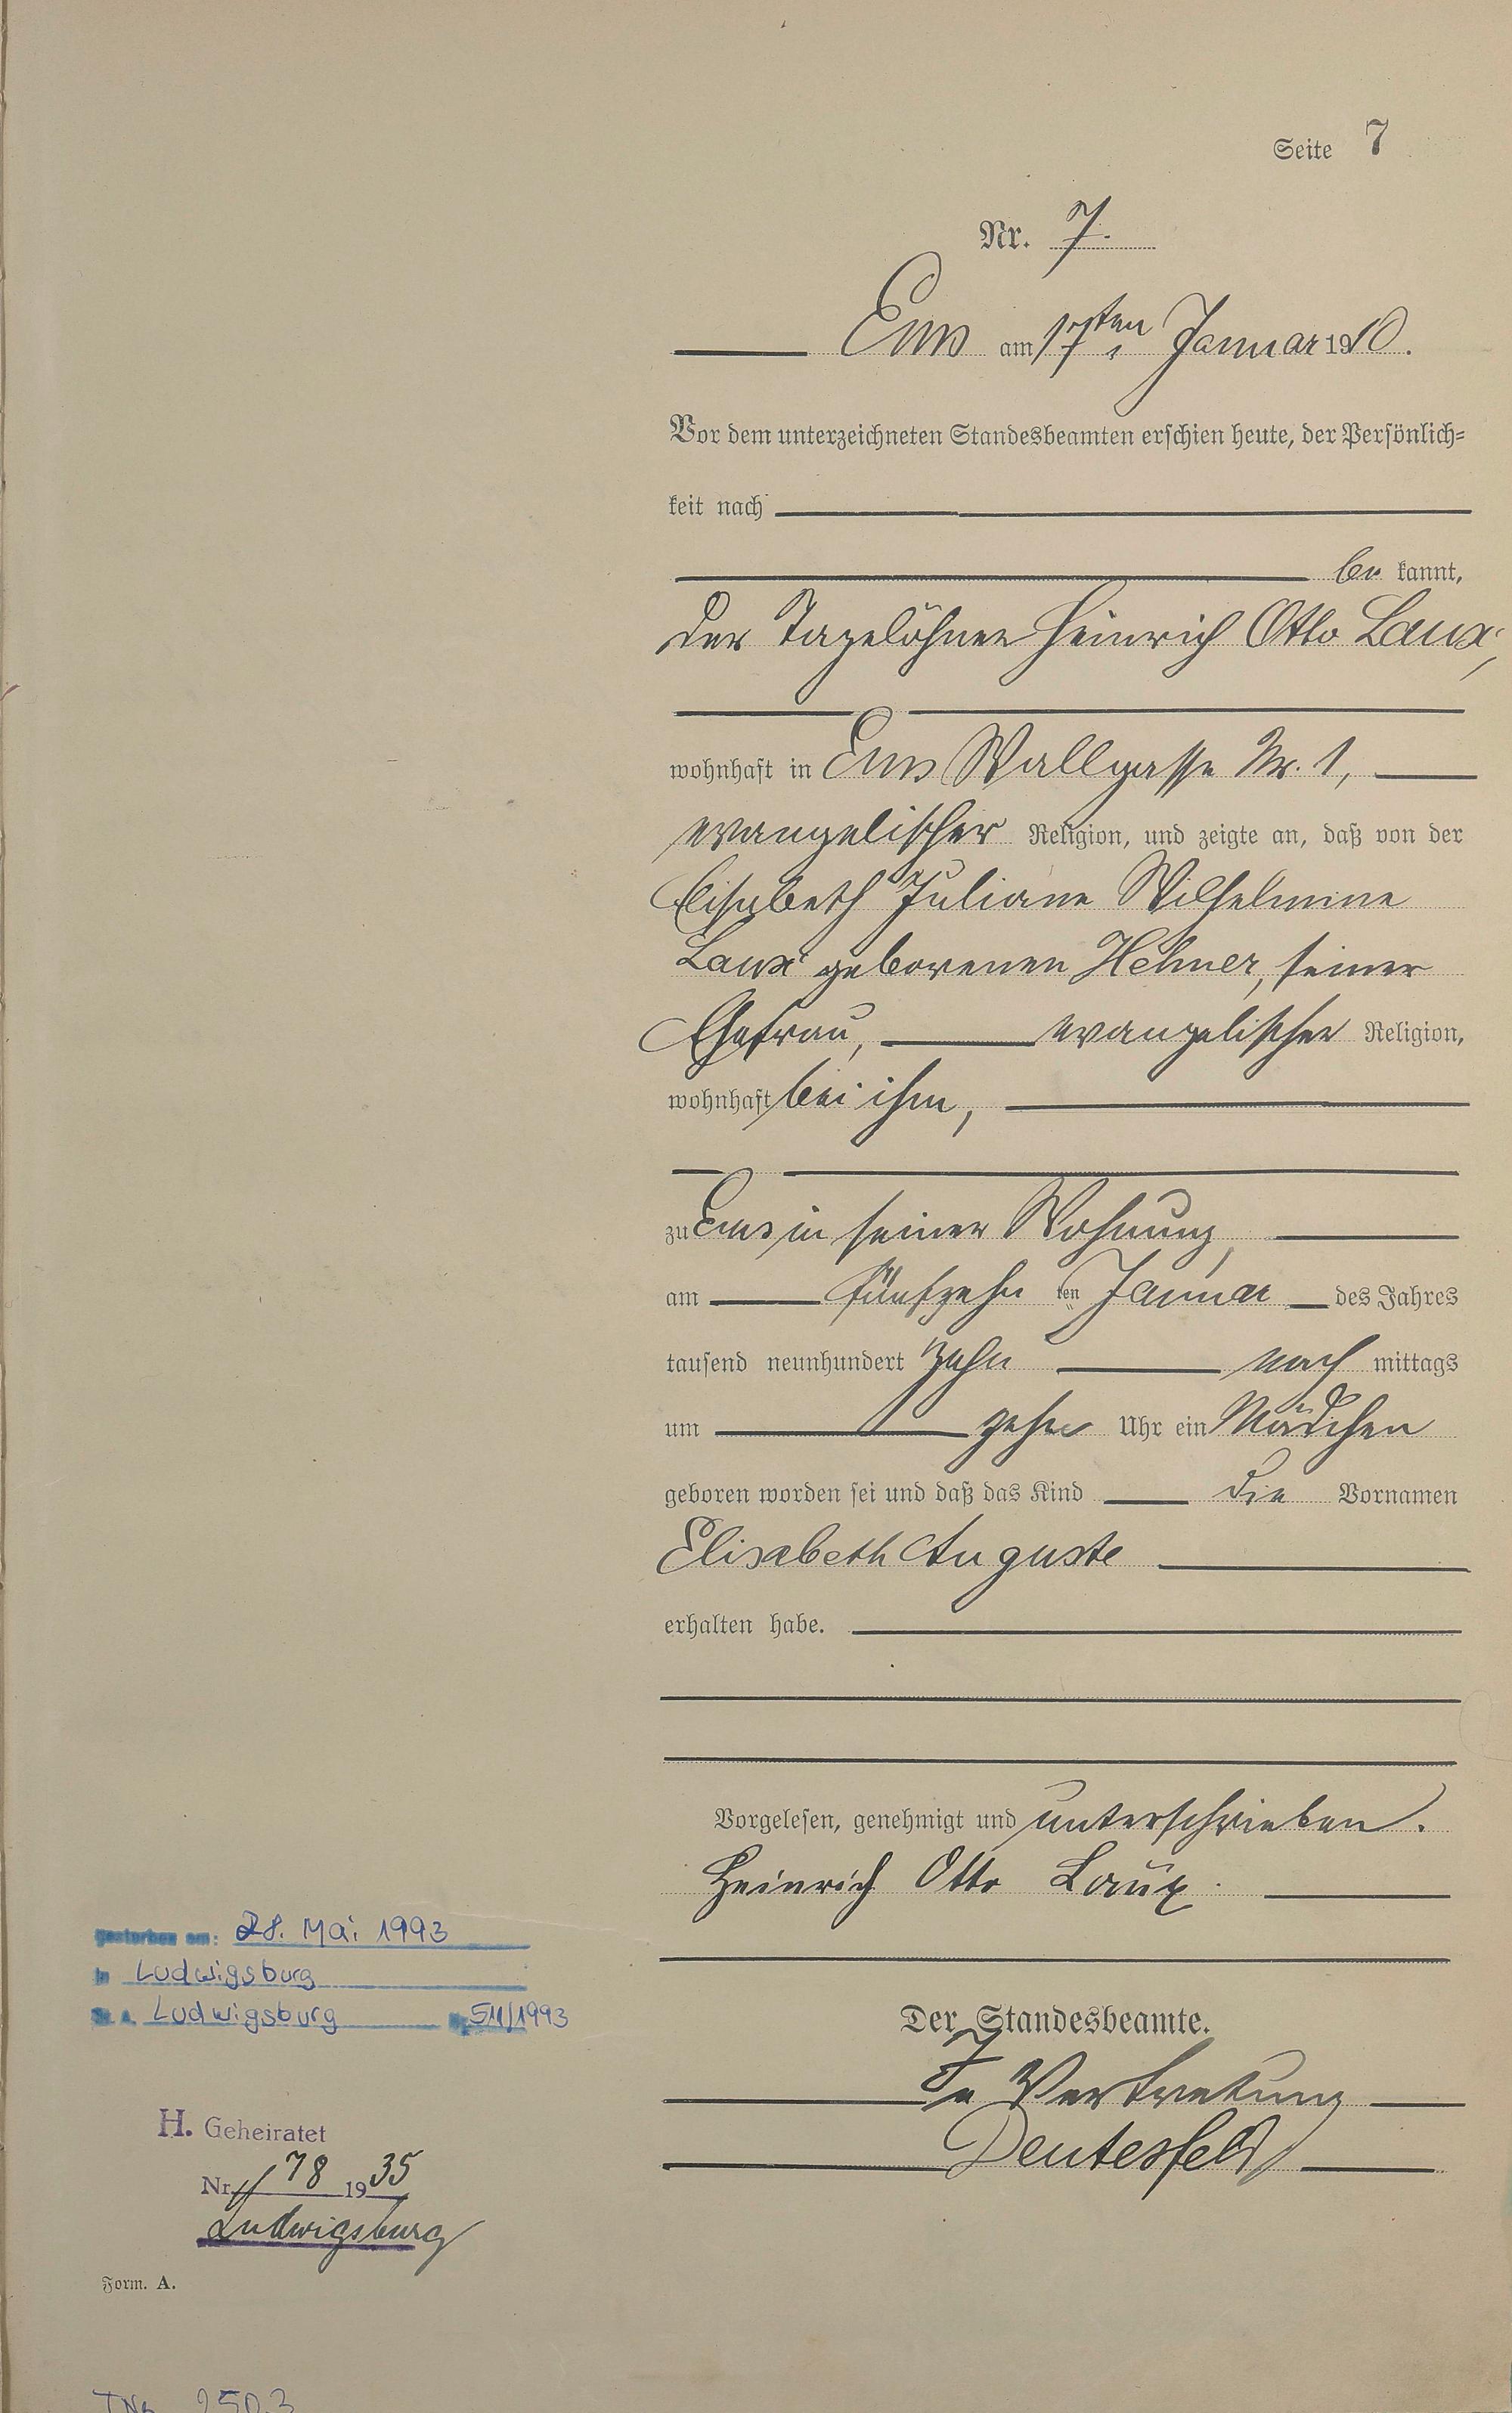 Seite 7
Nr. 7.
Ems am 17ten Januar 1910.
Vor dem unterzeichneten Standesbeamten erschien heute, der Persönlich-
keit nach
be kannt,
der Tagelöhner Heinrich Otto Laux,
wohnhaft in Ems Wallgasse Nr. 1,
evangelischer Religion, und zeigte an, daß von der
Elisabeth Juliane Wilhelmine
Laux geborenen Hehner, seiner
Ehefrau, evangelischer Religion,
wohnhaft bei ihm,
zu Ems in seiner Wohnung,
am fünfzehn ten Januar des Jahres
tausend neunhundert zehn nach mittags
um zehn Uhr ein Mädchen
geboren worden sei und daß das Kind die Vornamen
Elisabeth Auguste
erhalten habe.
Vorgelesen, genehmigt und unterschrieben.
Heinrich Otto Laux.
Der Standesbeamte.
In Vertretung
Deutesfeld
gestorben am: 28. Mai 1993
in Ludwigsburg
St. A. Ludwigsburg Nr. 511/1993
H. Geheiratet
Nr. 78 1935
Ludwigsburg
Form. A.